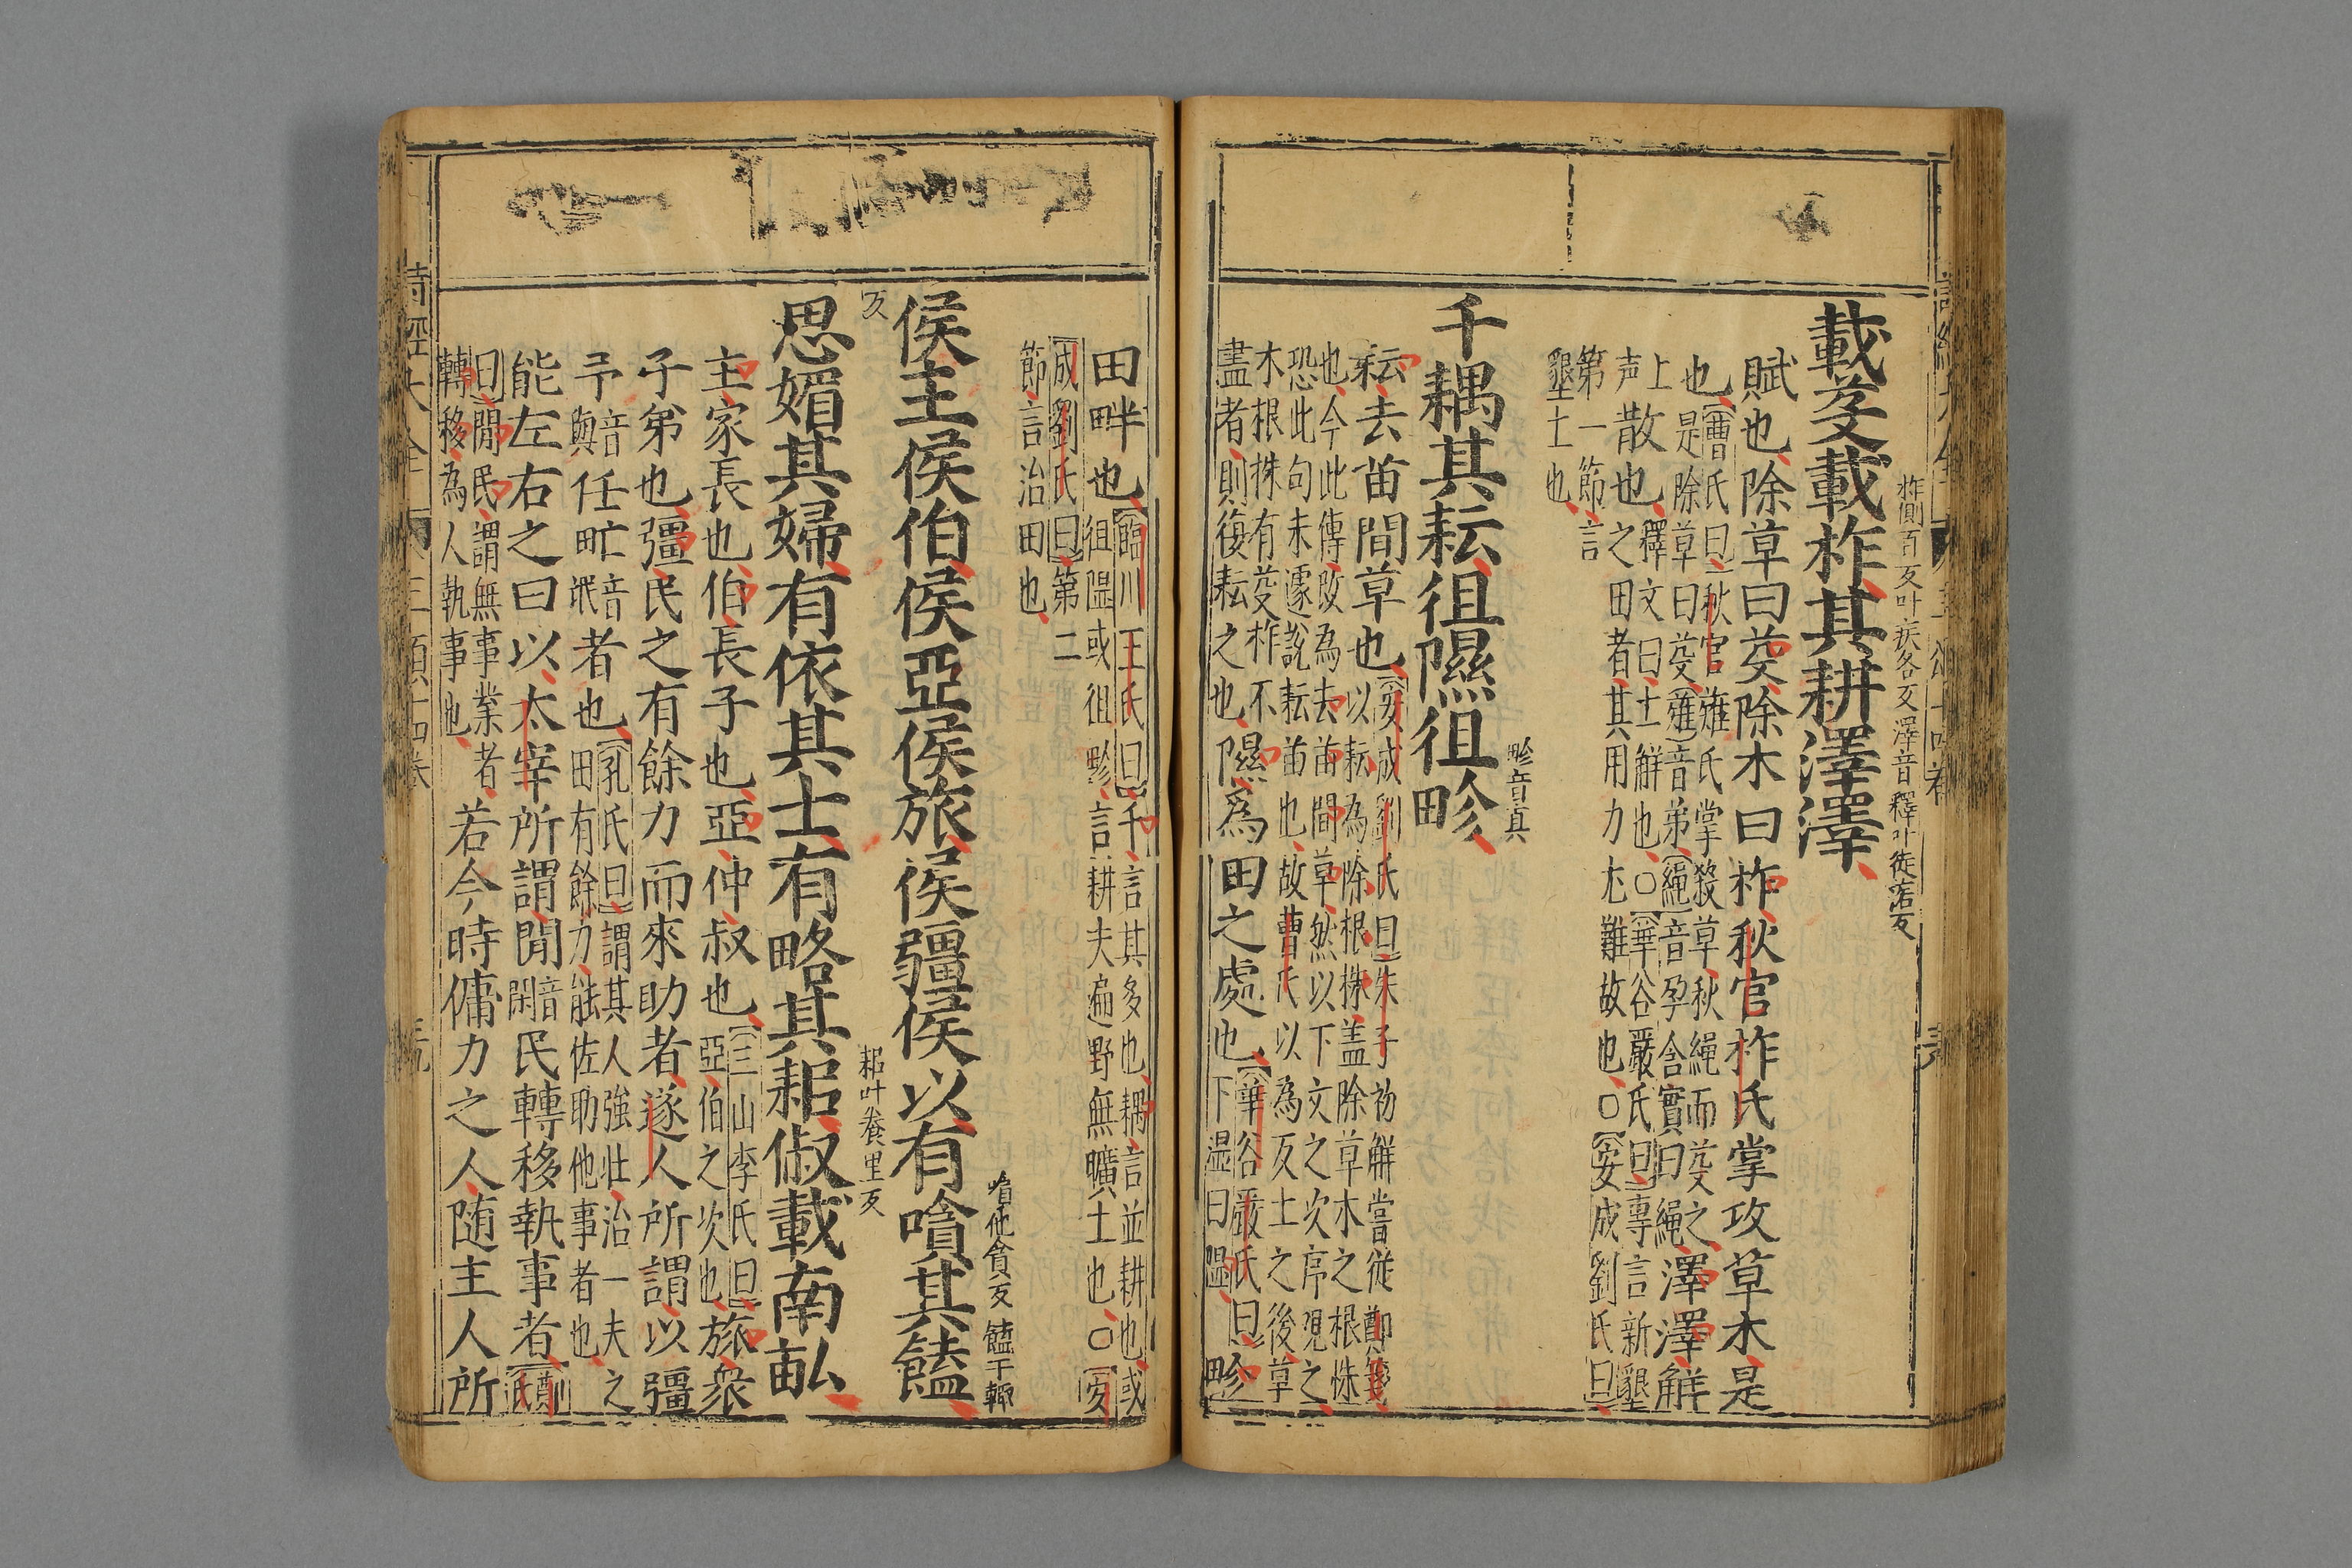 載芟載柞其耕澤澤
柞側百反叶疾各反澤音釋叶徒洛反
賦也除草曰芟除木曰柞秋官柞氏掌攻草木是
也
曹氏曰秋官薙氏掌殺草秋繩而芟之
是除草曰芟薙音弟繩音孕含實曰繩
澤澤解
散也
釋文曰土觧也○華谷嚴氏曰專言新墾
之田者其用力尤難故也○安成劉氏曰
第一節言
墾土也
千耦其耘徂隰徂畛
畛音真
耘去苗間草也
安成劉氏曰朱子初觧嘗従鄭箋
以耘為除根株盖除草木之根株
也今此傳改為去苗間草然以下文之次序覌之
恐此句未遽說耘苗也故曹氏以為反土之後草
木根株有芟柞不
盡者則復耘之也
隰爲田之處也
華谷嚴氏曰
下濕曰隰
畛
田畔也
臨川王氏曰千言其多也耦言並耕也或
徂隰或徂畛言耕夫遍野無曠土也○安
成劉氏曰第二
節言治田也
侯主侯伯侯亞侯旅侯彊侯以有嗿其饁
嗿他貪反饁于輒
反
思媚其婦有依其士有略其耜俶載南畝
耜叶養里反
主家長也伯長子也亞仲叔也
三山李氏曰
亞伯之次也
旅衆
子弟也彊民之有餘力而來助者遂人所謂以彊
予
音與
任甿
音氓
者也
孔氏曰謂其人強壮治一夫之
田有餘力能佐助他事者也
能左右之曰以太宰所謂閒
音閑
民轉移執事者
鄭氏
曰閒民謂無事業者
轉移為人執事也
若今時傭力之人随主人所